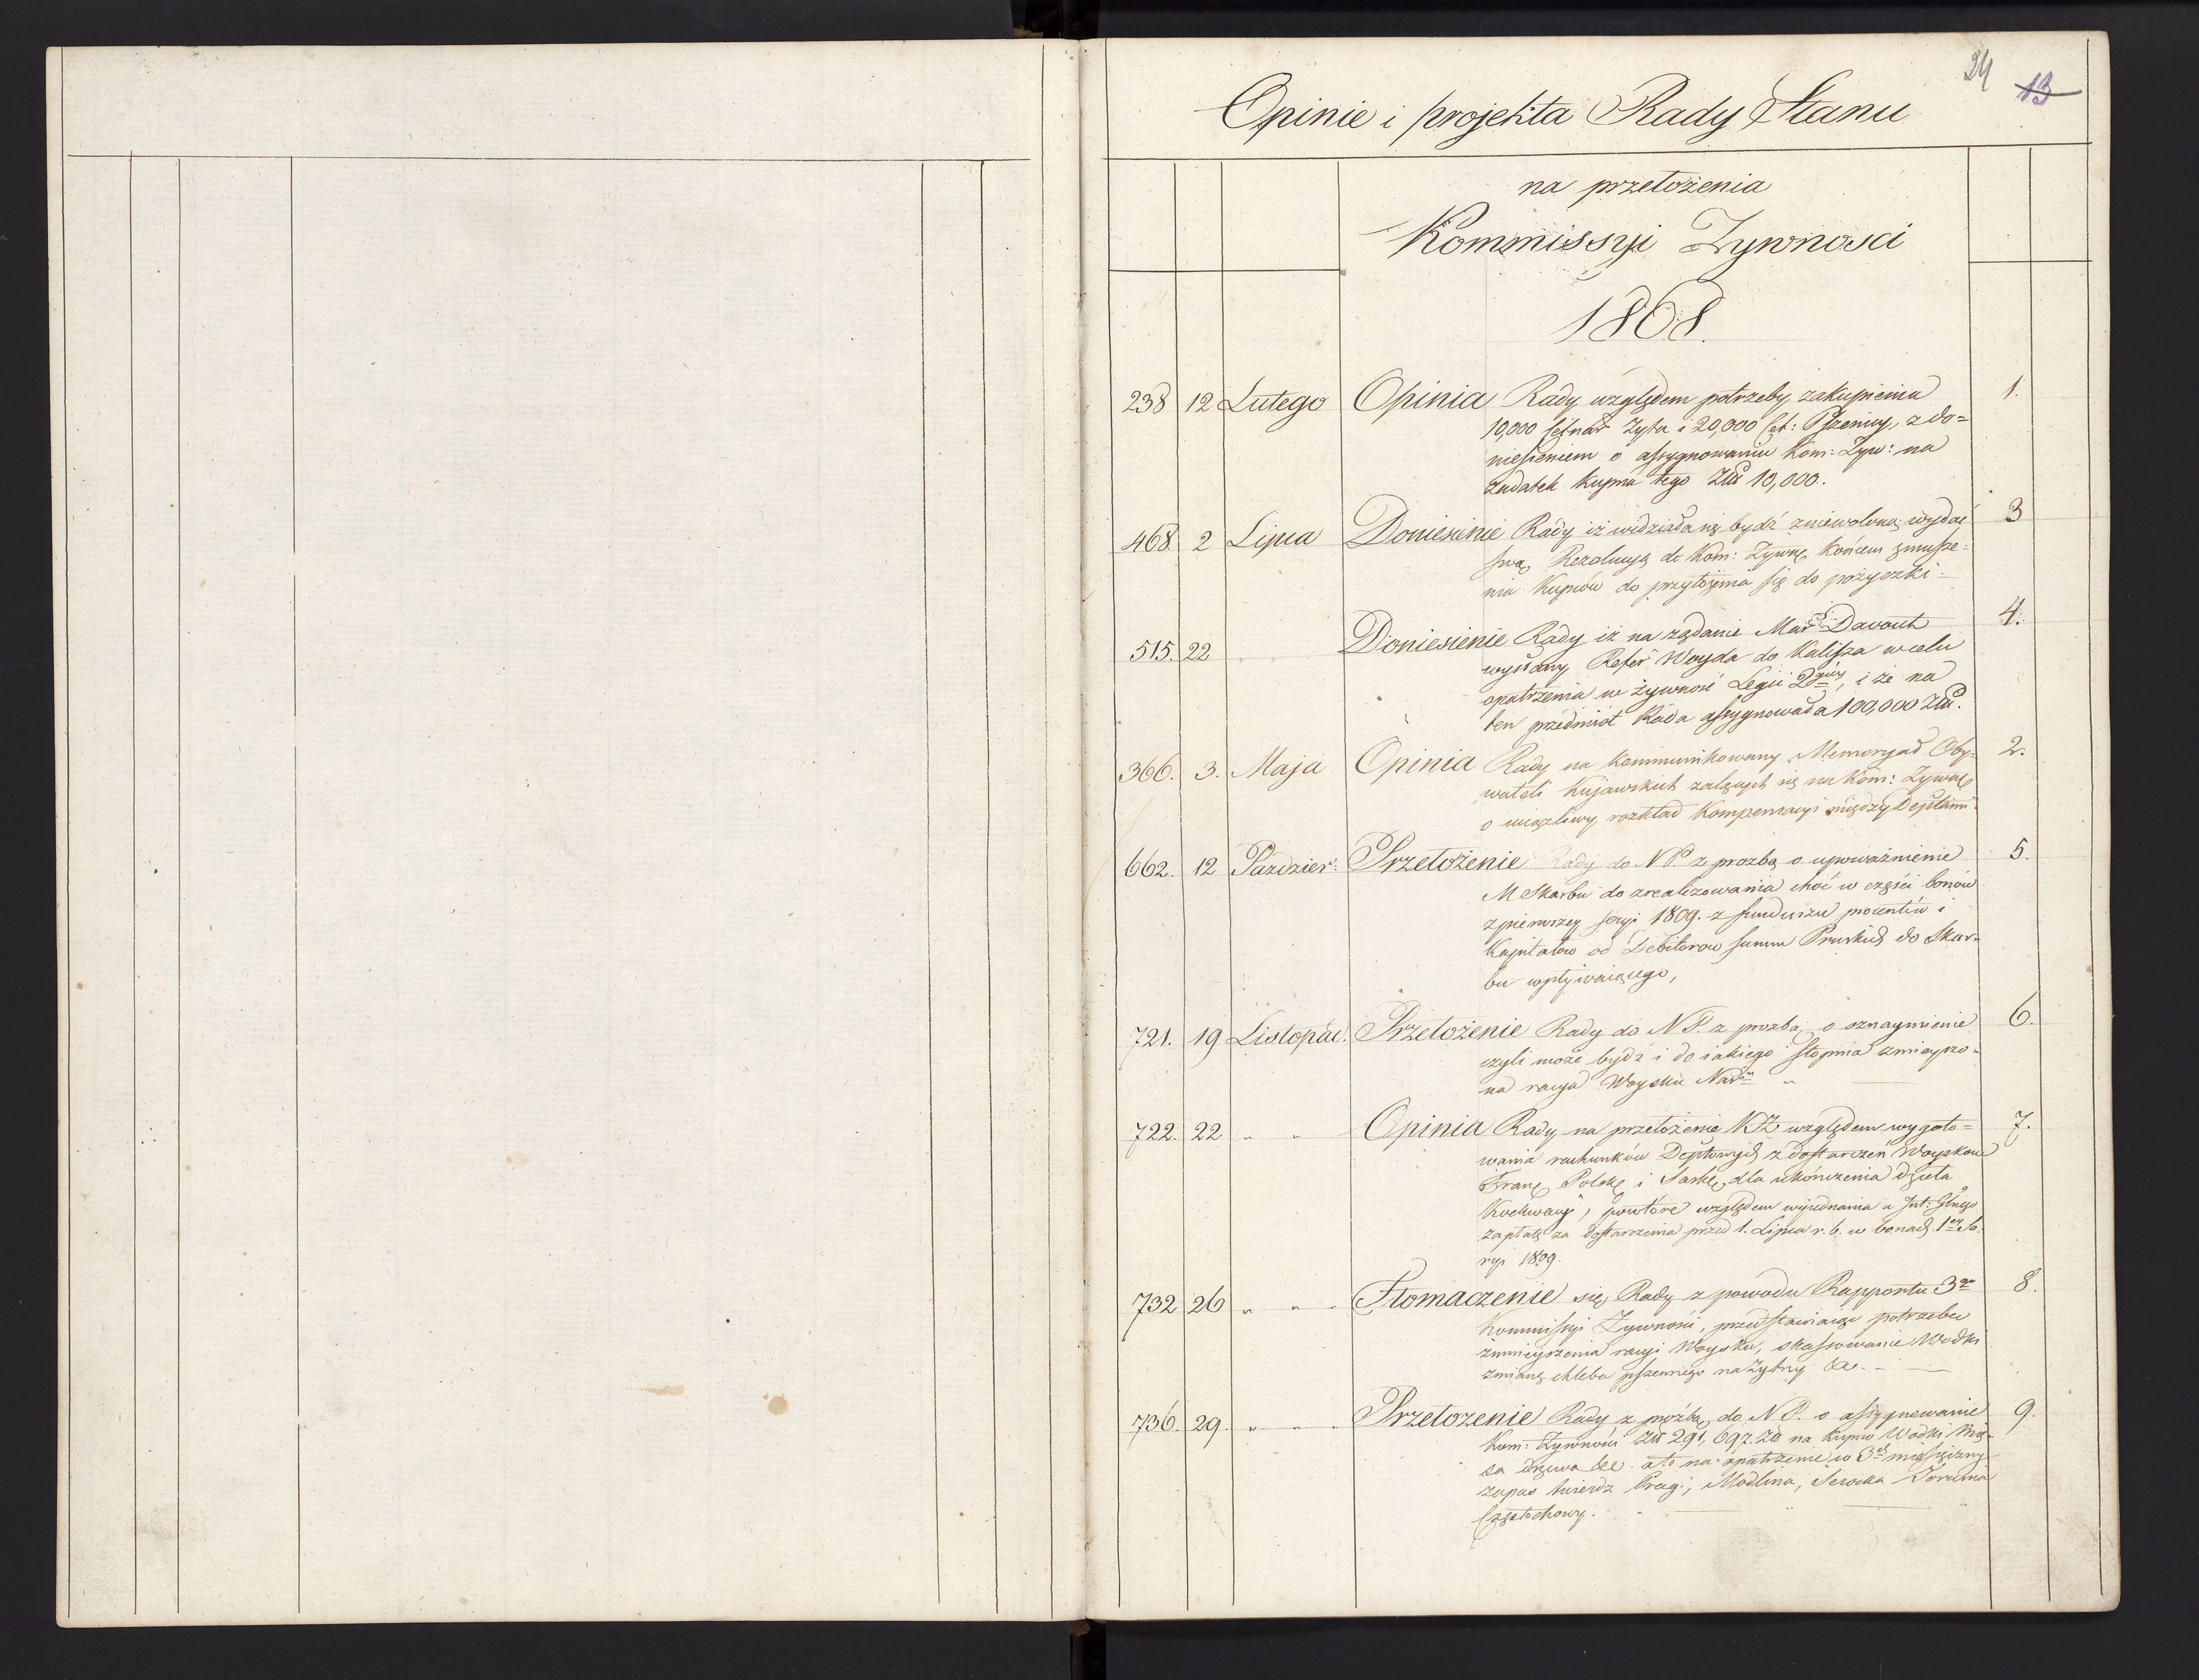 24 13
Opinie i projekta Rady Stanu
na przełożenia
Kommissyi Zywnosci
1808.
238 12 Lutego Opinia Rady względem potrzeby zakupienia 1.
10,000 Cetnar Zyta i 20,000 Cet: Pszenicy, z do=
niesieniem o assygnowaniu Kom: Zyw: na
zadatek kupna tego Złł 10,000.
468 2 Lipca Doniesienie Rady iż widziała się bydź zniewoloną wydać 3
swą Rezolucyą do Kom: Zywnę końcem zmusze=
nia Kupców do przyłożenia się do pożyczki.
515. 22 Doniesienie Rady iż na żądanie Mar: Davout 4.
wysłany Refer Woyda do Kalisza w celu
opatrzenia w żywność Legii, i że na
ten przedmiot Rada assygnowała 100,000 Złł.
366. 3. Maja Opinia Rady na kommunikowany Memoryał Oby= 2.
wateli Kujawskich żalących się na Kom: Zywnę
o uciążliwy rozkład Kompensacyi między Deptami
662. 12 Pazdzier: Przełożenie Rady do NP z prozbą o upoważnienie 5.
M Skarbu do zrealizowania choć w części bonów
z pierwszey seryi 1809. z funduszu procentów i
Kapitałów od Debitorow summ Pruskich do Skar=
bu wpływaiącego,
721. 19 Listopad. Przełożenie Rady do N P. z prozbą o oznaymienie 6.
czyli może bydz i do iakiego stopnia zmieyszo=
na racya Woysku
722. 22 " " Opinia Rady na przełożenie KŻ względem wygoto= 7.
wania rachunków Deptowych z dostarczeń Woyskom
Franę Polskę i Saskę, dla ukończenia dzieła
powtóre względem wyiednania u Int: Głnego
zapłatę za dostarczenia przed 1. Lipca r. b. w bonach 1ey Se
ryi 1809.
732 26 " " " Tłomaczenie się Rady z powodu Rapportu 3go 8.
Kommissyi Zywności, przedstawiaiące potrzebę
zmnieyszenia racyi Woysku, skassowanie Wodki
zmianę chleba pszennego na żytny &c. —
736. 29. " " " Przełozenie Rady z prożbą do N P. o assygnowanie 9.
Kom: Zywności Złł 291,697.20 na kupno Wodki Mię=
sa drzewa &c. a to na opatrzenie w 3ch miesięczny
zapas twierdz Pragi, Modlina, Serocka Torunia
Częstochowy.